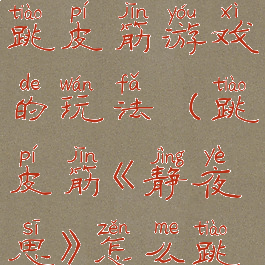 tiào pí jīn yóu xì
跳皮筋游戏
de wán fǎ tiào
的玩法(跳
pí jīn jìng yè
皮筋《静夜
sī zěn me tiào
思》怎么跳